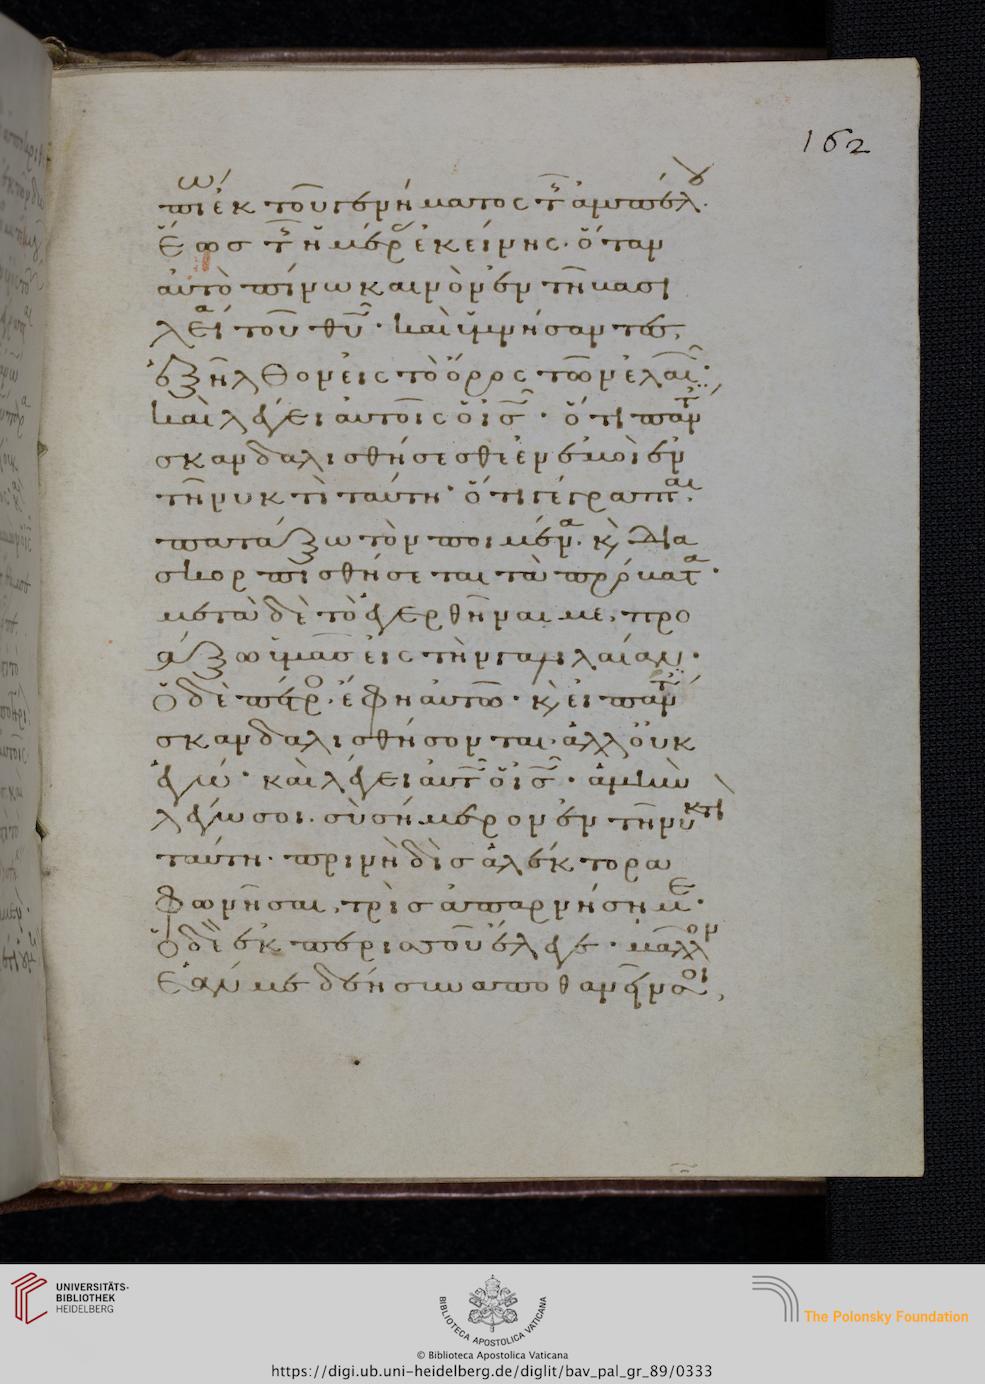 162
πίω ἐκ τοῦ γενήματος τῆς ἀμπέλου.
Ἕως τῆς ἡμέρας ἐκείνης. ὅταν
αὐτὸ πίνω καινὸν ἐν τῇ βασι
λεία τοῦ θυ. καὶ ὑμνήσαντες,
ἐξῆλθον εἰς τὸ ὄρος τῶν ἐλαιῶν.
καὶ λέγει αὐτοῖς ὁ ισ. ὅτι πάντες
σκανδαλισθήσεσθε ἐν ἐμοὶ ἐν
τῇ νυκτὶ ταύτη. ὅτι γέγραπται.
πατάξω τὸν ποιμένα. κὶ δια
σκορπισθήσεται τὰ πρόβατα.
μετὰ δὲ τὸ ἐγερθῆναι με, προ
άξω ὑμᾶσ εἰς τὴν γαλιλαίαν.
Ὁ δὲ πέτρος. ἔφη αὐτῶ. κὶ εἰ πάντες
σκανδαλισθήσονται. ἀλλ οὐκ
ἐγώ. καὶ λέγει αὐτῶ ὁ ισ. ἀμὴν
λέγω σοι. σὺ σήμερον ἐν τῇ νυκτὶ
ταύτη. πρινὴ δὶσ ἀλέκτορα
φωνῆσαι, τρὶσ ἀπαρνήση με.
Ὁ δὲ ἐκ περισσοῦ ἔλεγε. μᾶλλον
Ἐάν με δέη συναποθανεῖν σοι,
UNIVERSITÄTS-
BIBLIOTHEK
HEIDELBERG
BIBLIOTECA APOSTOLICA VATICANA
The Polonsky Foundation
© Biblioteca Apostolica Vaticana
https://digi.ub.uni-heidelberg.de/diglit/bav_pal_gr_89/0333